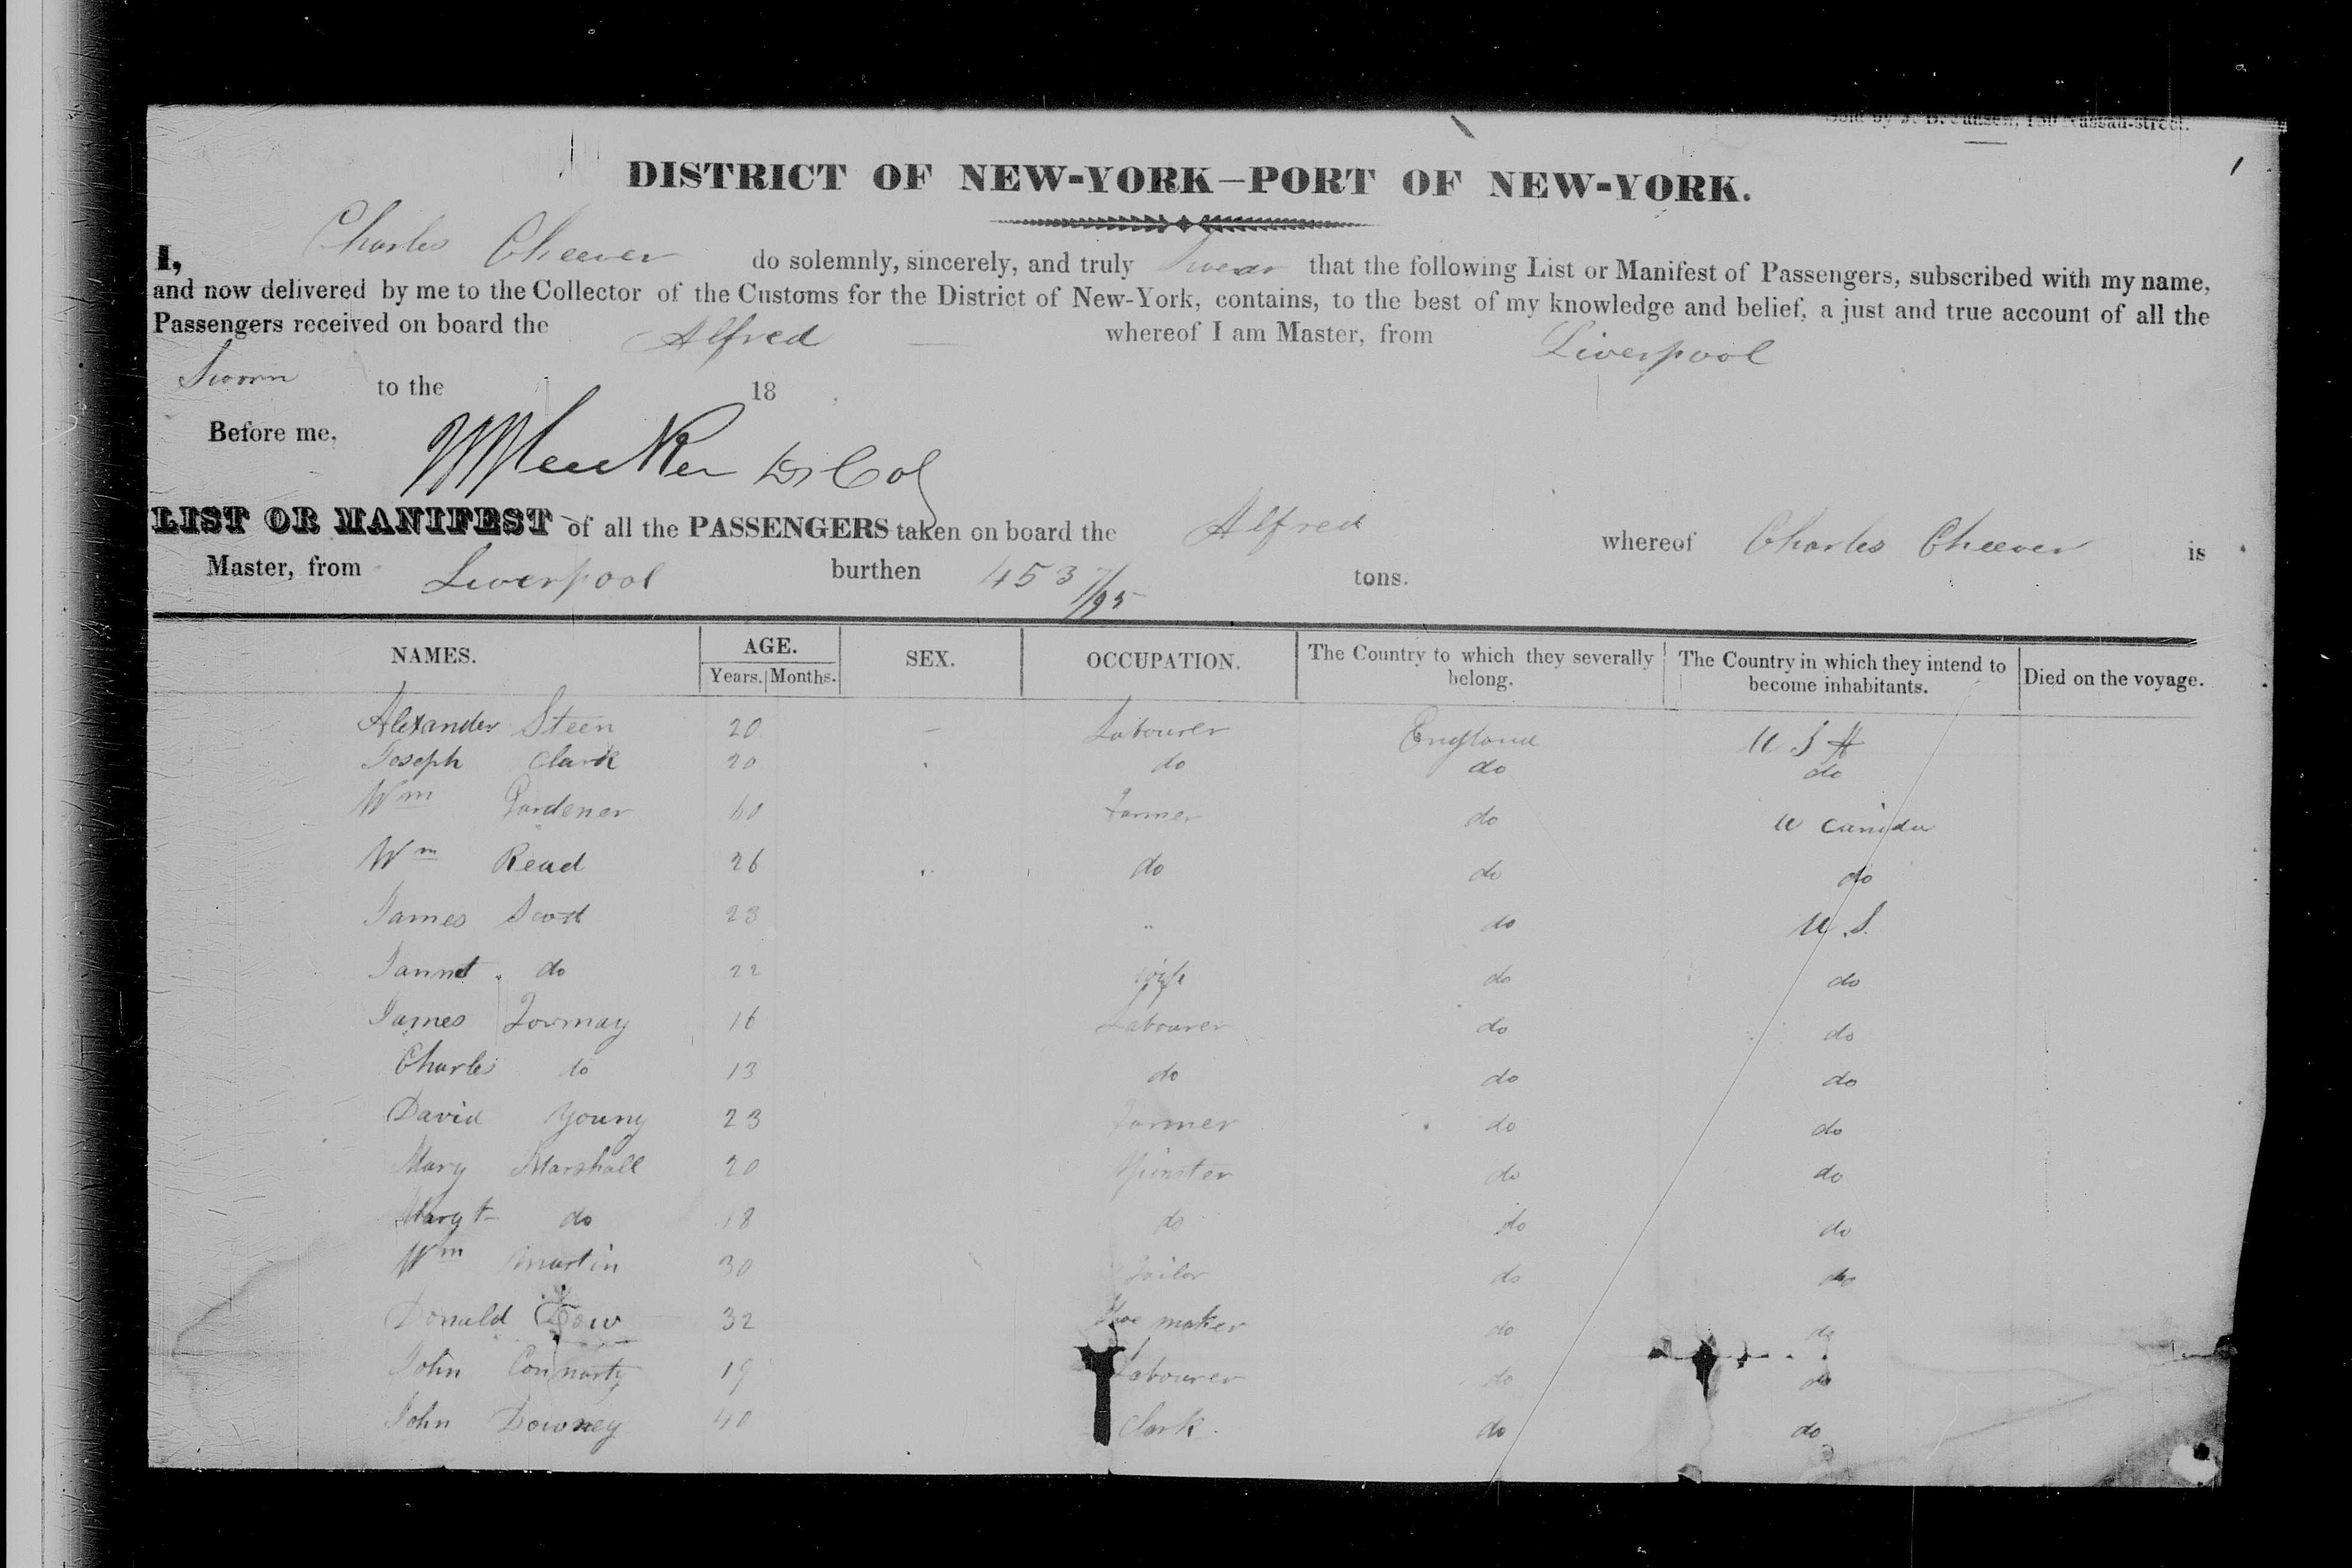 Sold by J. D. Jansen, 150 Nassau-street.
1
DISTRICT OF NEW-YORK—PORT OF NEW-YORK.
I, Charles Cheever do solemnly, sincerely, and truly Swear that the following List or Manifest of Passengers, subscribed with my name,
and now delivered by me to the Collector of the Customs for the District of New-York, contains, to the best of my knowledge and belief, a just and true account of all the
Passengers received on board the Alfred whereof I am Master, from Liverpool
Sworn to the 18
Before me, Col
LIST OR MANIFEST of all the PASSENGERS taken on board the Alfred whereof Charles Cheever is
Master, from Liverpool burthen 453 7/95 tons.
NAMES. AGE. Years. Months. SEX. OCCUPATION. The Country to which they severally belong. The Country in which they intend to become inhabitants. Died on the voyage.
Alexander Steen 20 – Labourer England U S A
Joseph Clark 20 do do do
Wm Gardener 60 Farmer do U Canida
Wm Read 26 do do do
James Scott 23 " do U.S.
Jannet do 22 wife do do
James 16 Labourer do do
Charles do 13 do do do
David Young 23 Farmer do do
Mary Marshall 20 Spinster do do
Margt do 18 do do do
Wm Martin 30 Tailor do do
Donald Dow 32 Shoe maker do do
John Connarty 19 Labourer do do
John Downey 40 Clark do do